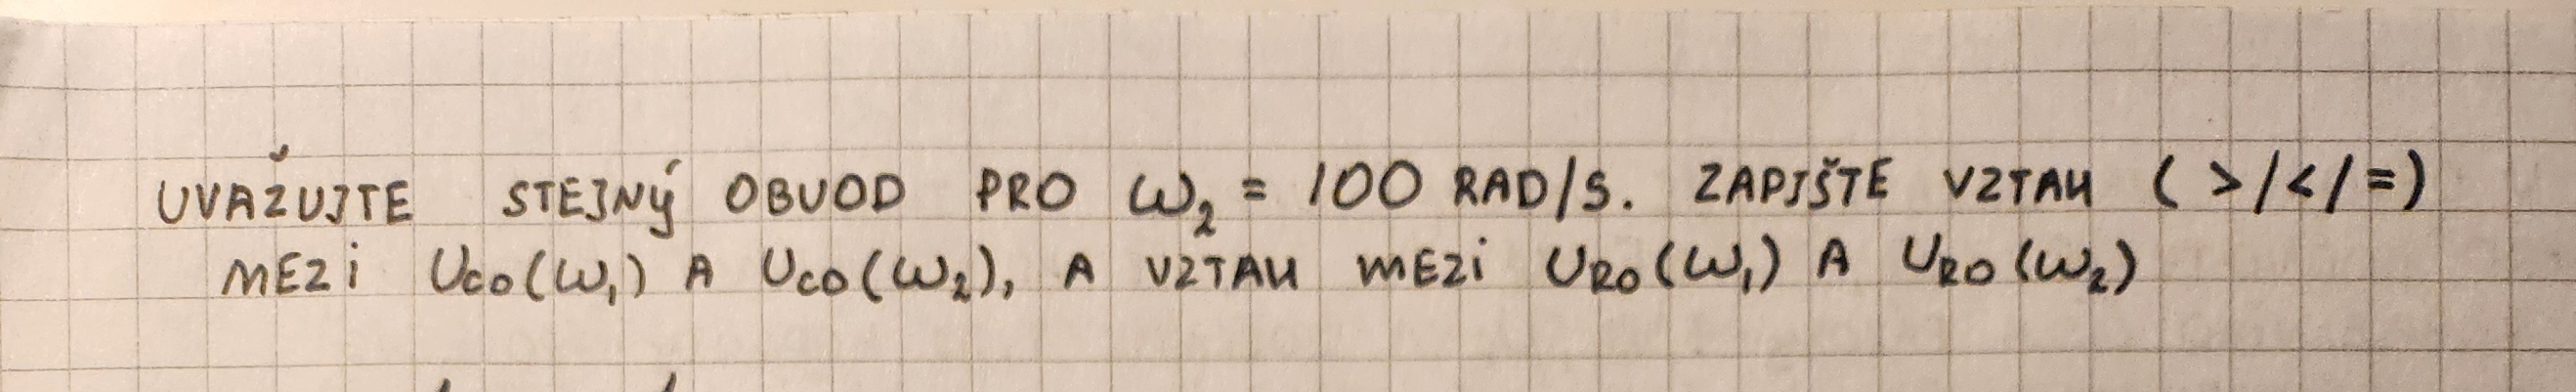 UVAŽUJTE STEJNÝ OBVOD PRO ω₂ = 100 RAD/S. ZAPIŠTE VZTAH (>/</=)
MEZI U_CO(ω₁) A U_CO(ω₂), A VZTAH MEZI U_RO(ω₁) A U_RO(ω₂)